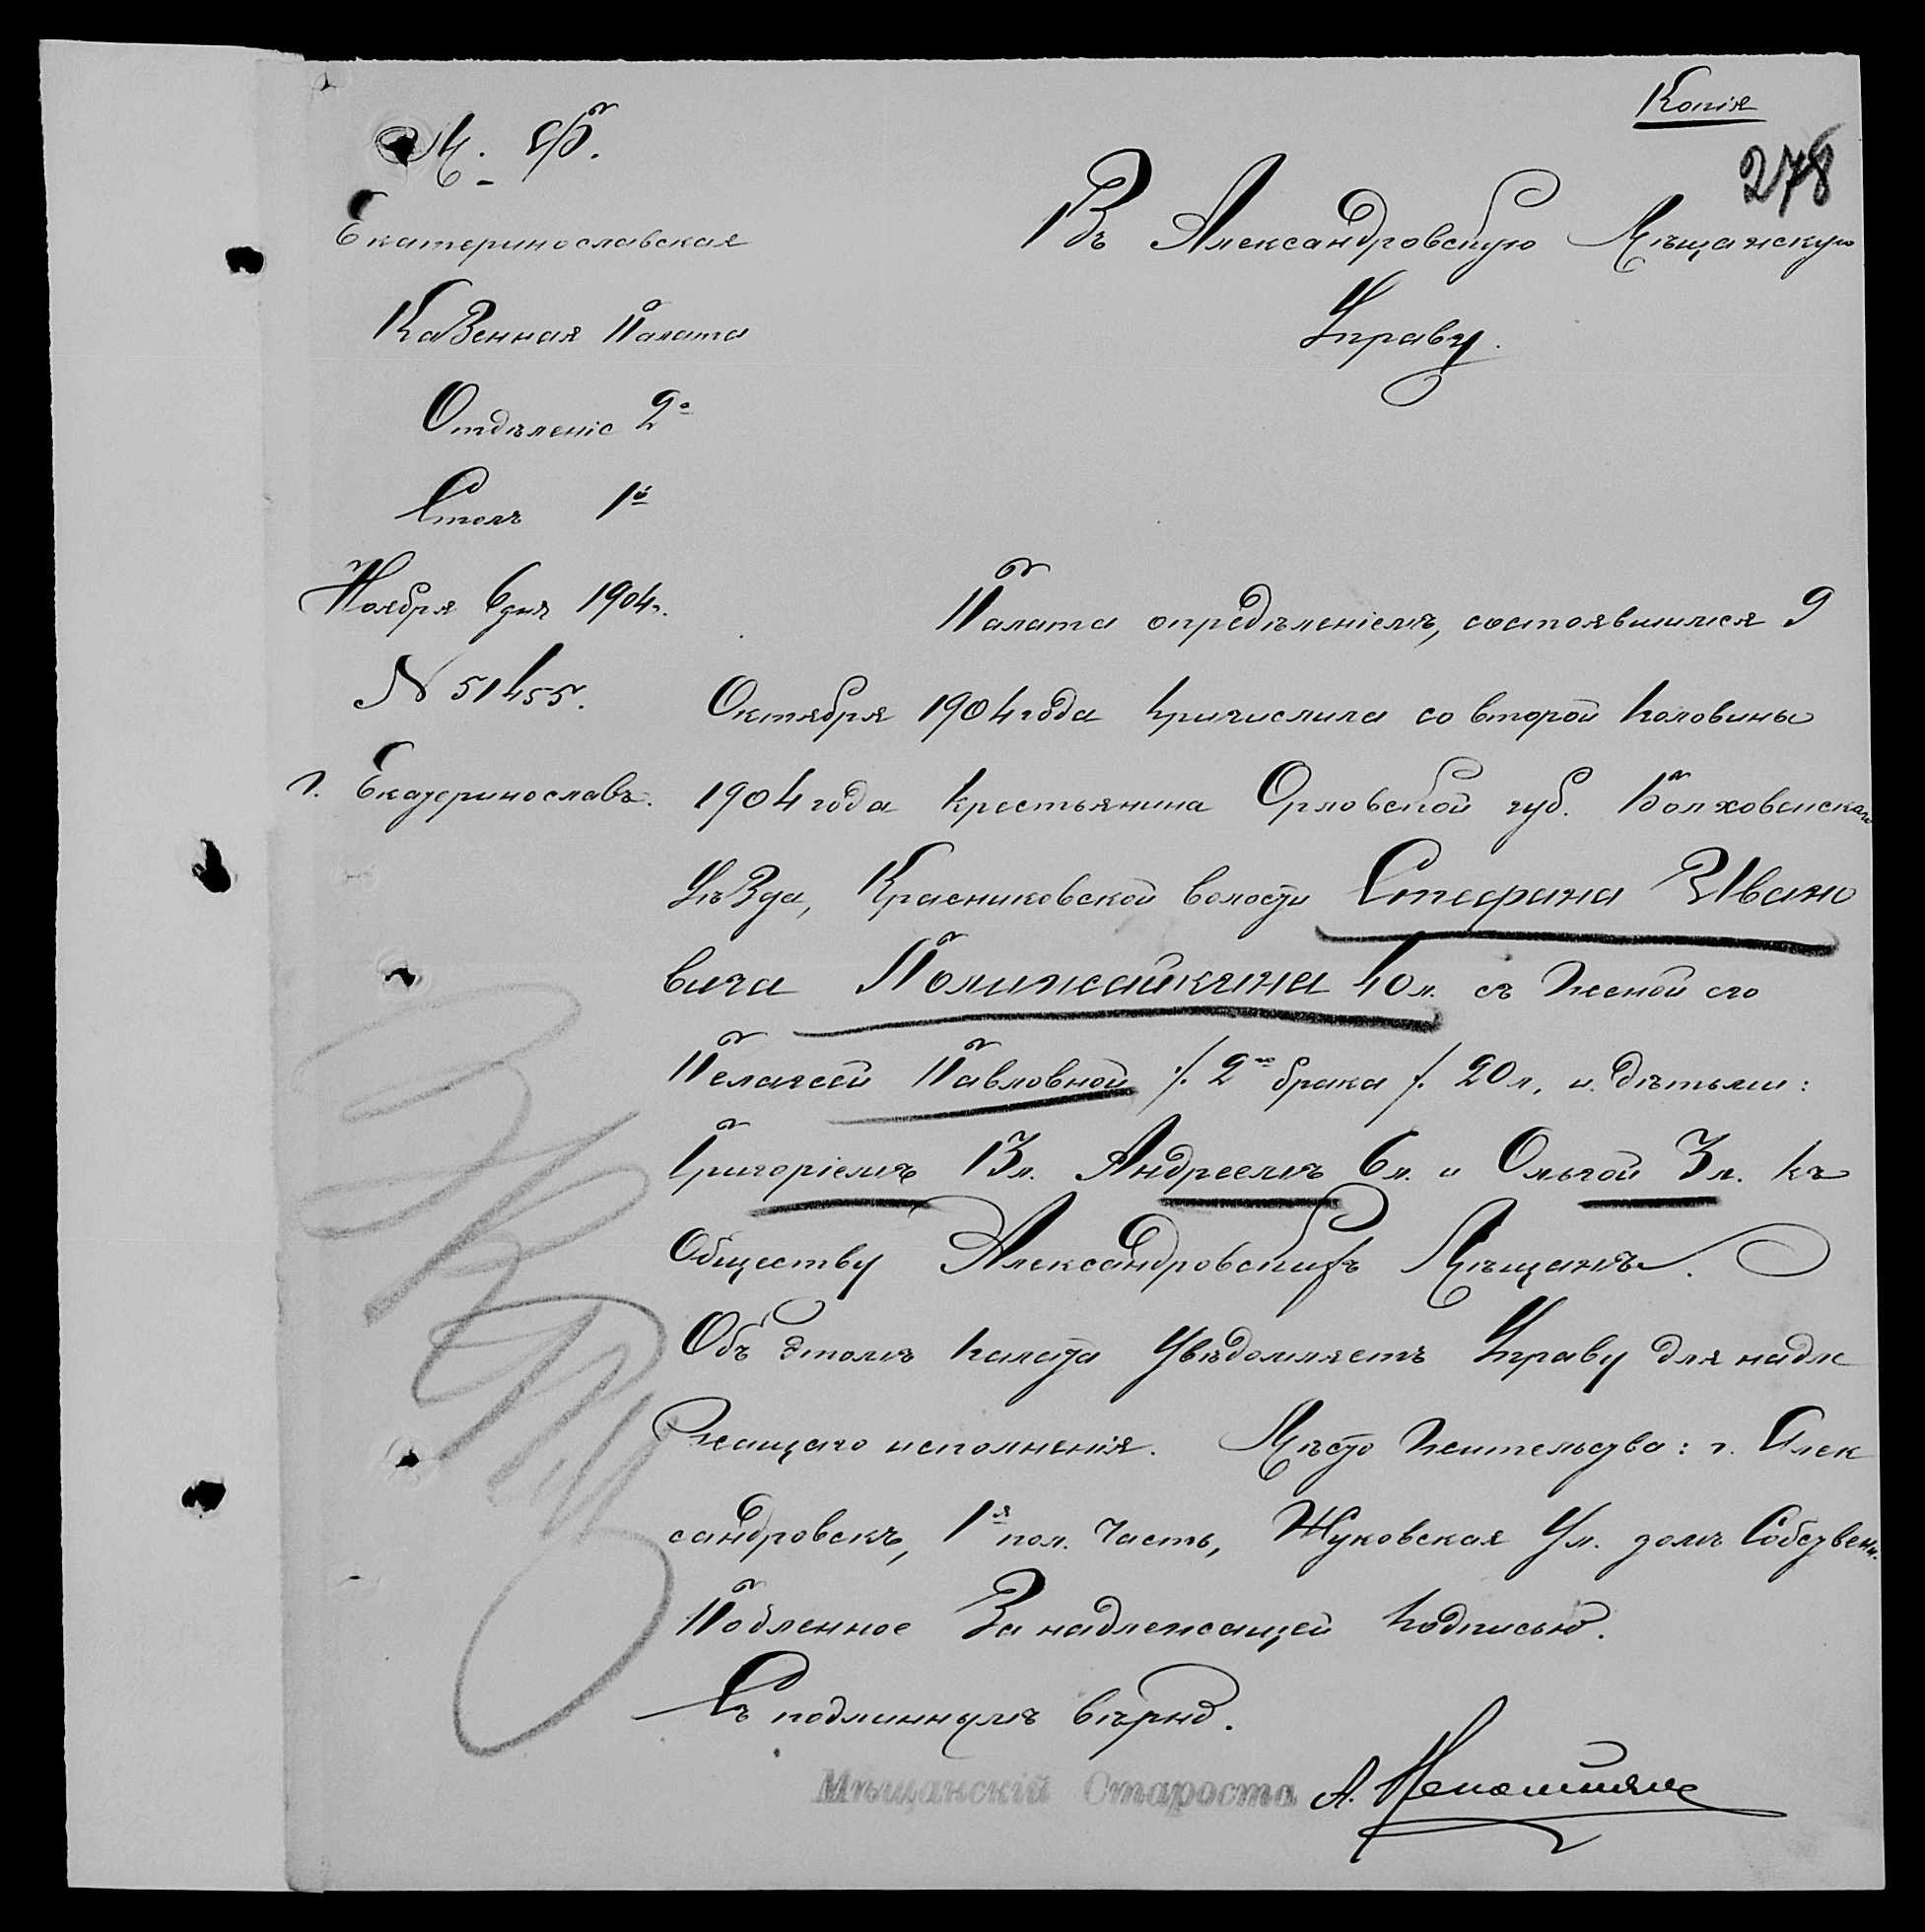 Копія
278
М. Ф.
Екатеринославская
Казенная Палата
Отдѣленіе 2е
Столъ 1й
Ноября 6 дня 1904 г.
N 51455.
г. Екатеринославъ.
Въ Александровскую Мѣщанскую
Управу.
Палата опредѣленіемъ, состоявшимся 9
Октября 1904 года причислила со второй половины
1904 года крестьянина Орловской губ. Болховенскаго
Уѣзда, Красниковской волости Стефана Ивано
вича Полижайкина 40 л. съ женой его
Пелагеей Павловной /. 2го брака /. 20 л, и дѣтьми:
Григоріемъ 13 л. Андреемъ 6 л. и Ольгой 3 л. къ
Обществу Александровскихъ Мѣщанъ.
Объ этомъ палата увѣдомляетъ Управу для надле
жащаго исполненія. Мѣсто жительства: г. Алек
сандровскъ, 1я пол. часть, Жуковская ул. домъ Собствен.
Подленное За надлежащей подписью.
Съ подлиннымъ вѣрно.
Мѣщанскій Староста А.